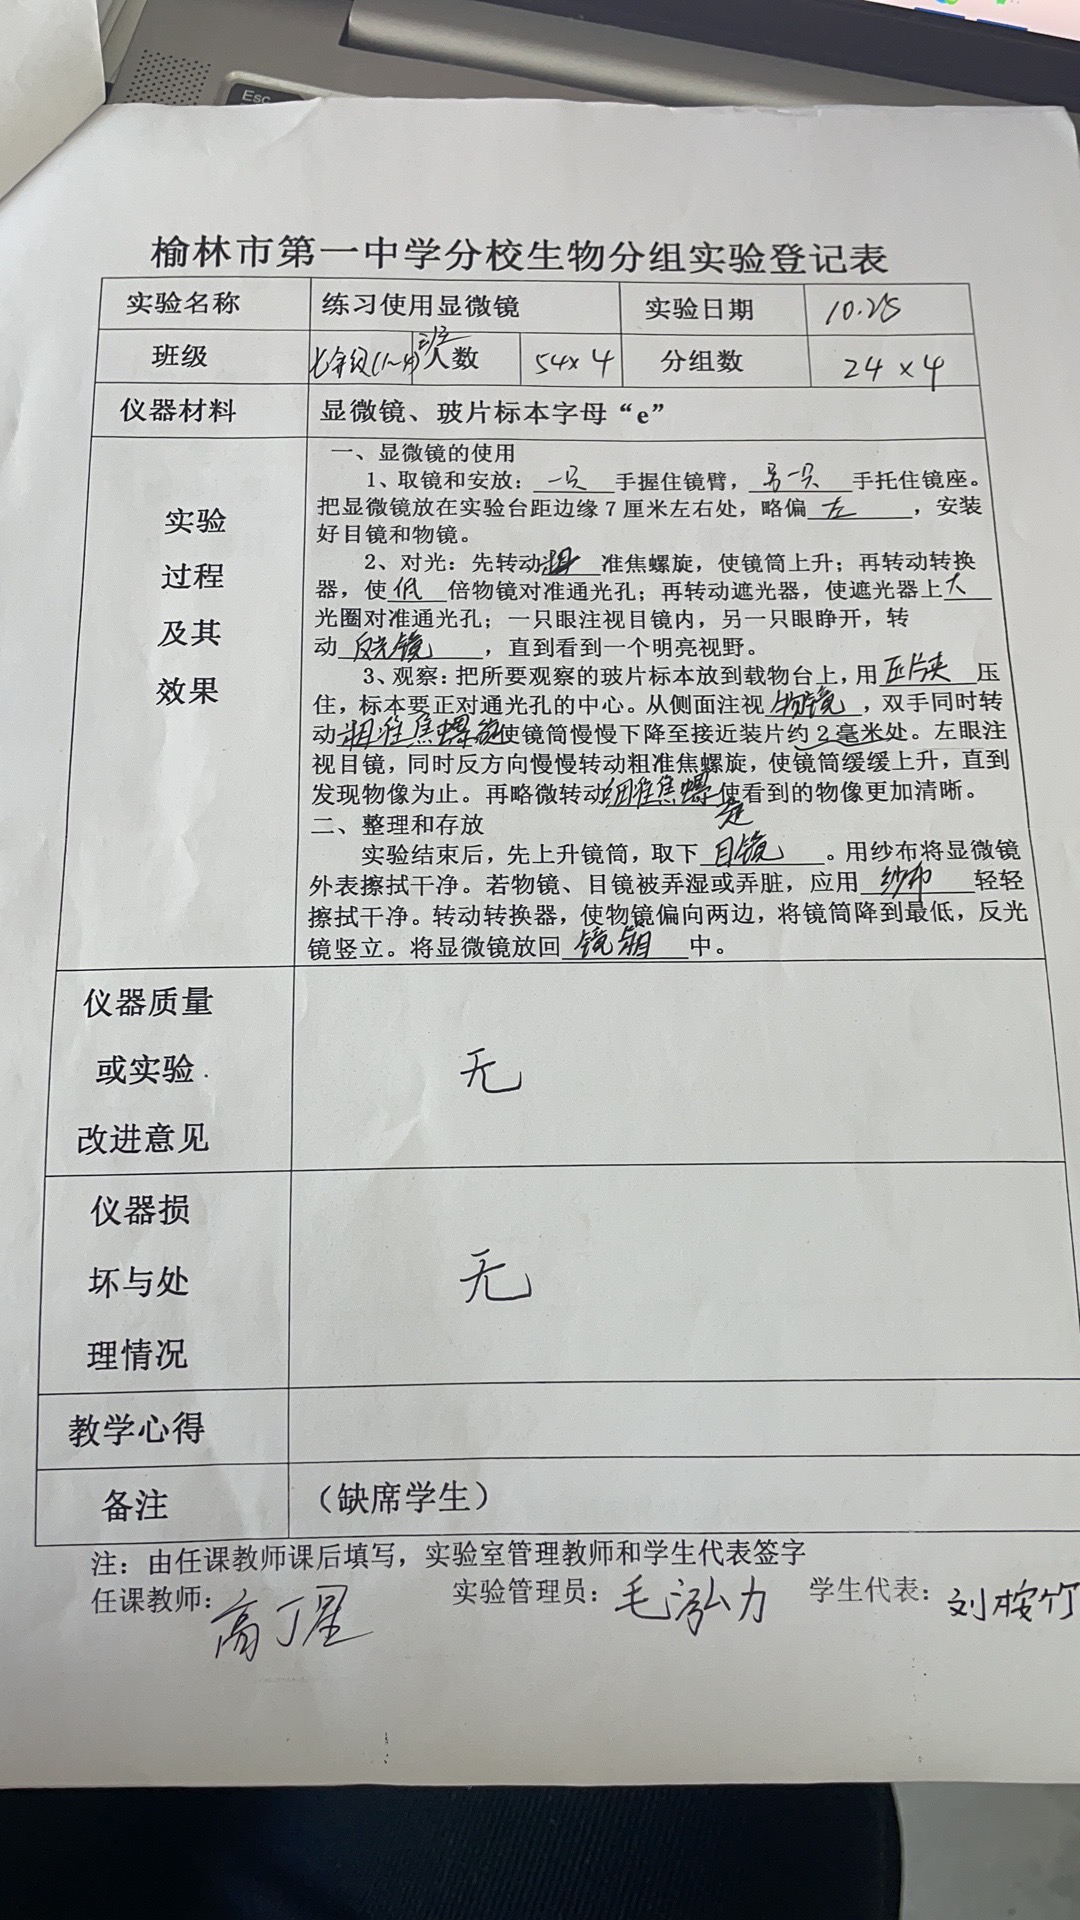 Esc
榆林市第一中学分校生物分组实验登记表
实验名称 练习使用显微镜 实验日期 10.25
班级 七年级(1~4)班 人数 54×4 分组数 24×4
仪器材料 显微镜、玻片标本字母“e”
实验
过程
及其
效果
一、显微镜的使用
1、取镜和安放：一只手握住镜臂，另一只手托住镜座。
把显微镜放在实验台距边缘7厘米左右处，略偏左，安装
好目镜和物镜。
2、对光：先转动粗准焦螺旋，使镜筒上升；再转动转换
器，使低倍物镜对准通光孔；再转动遮光器，使遮光器上大
光圈对准通光孔；一只眼注视目镜内，另一只眼睁开，转
动反光镜，直到看到一个明亮视野。
3、观察：把所要观察的玻片标本放到载物台上，用压片夹压
住，标本要正对通光孔的中心。从侧面注视物镜，双手同时转
动粗准焦螺旋使镜筒慢慢下降至接近装片约2毫米处。左眼注
视目镜，同时反方向慢慢转动粗准焦螺旋，使镜筒缓缓上升，直到
发现物像为止。再略微转动细准焦螺旋使看到的物像更加清晰。
二、整理和存放
实验结束后，先上升镜筒，取下目镜。用纱布将显微镜
外表擦拭干净。若物镜、目镜被弄湿或弄脏，应用纱布轻轻
擦拭干净。转动转换器，使物镜偏向两边，将镜筒降到最低，反光
镜竖立。将显微镜放回镜箱中。
仪器质量
或实验
改进意见
无
仪器损
坏与处
理情况
无
教学心得
备注 （缺席学生）
注：由任课教师课后填写，实验室管理教师和学生代表签字
任课教师： 实验管理员：毛泓力 学生代表：刘桉竹